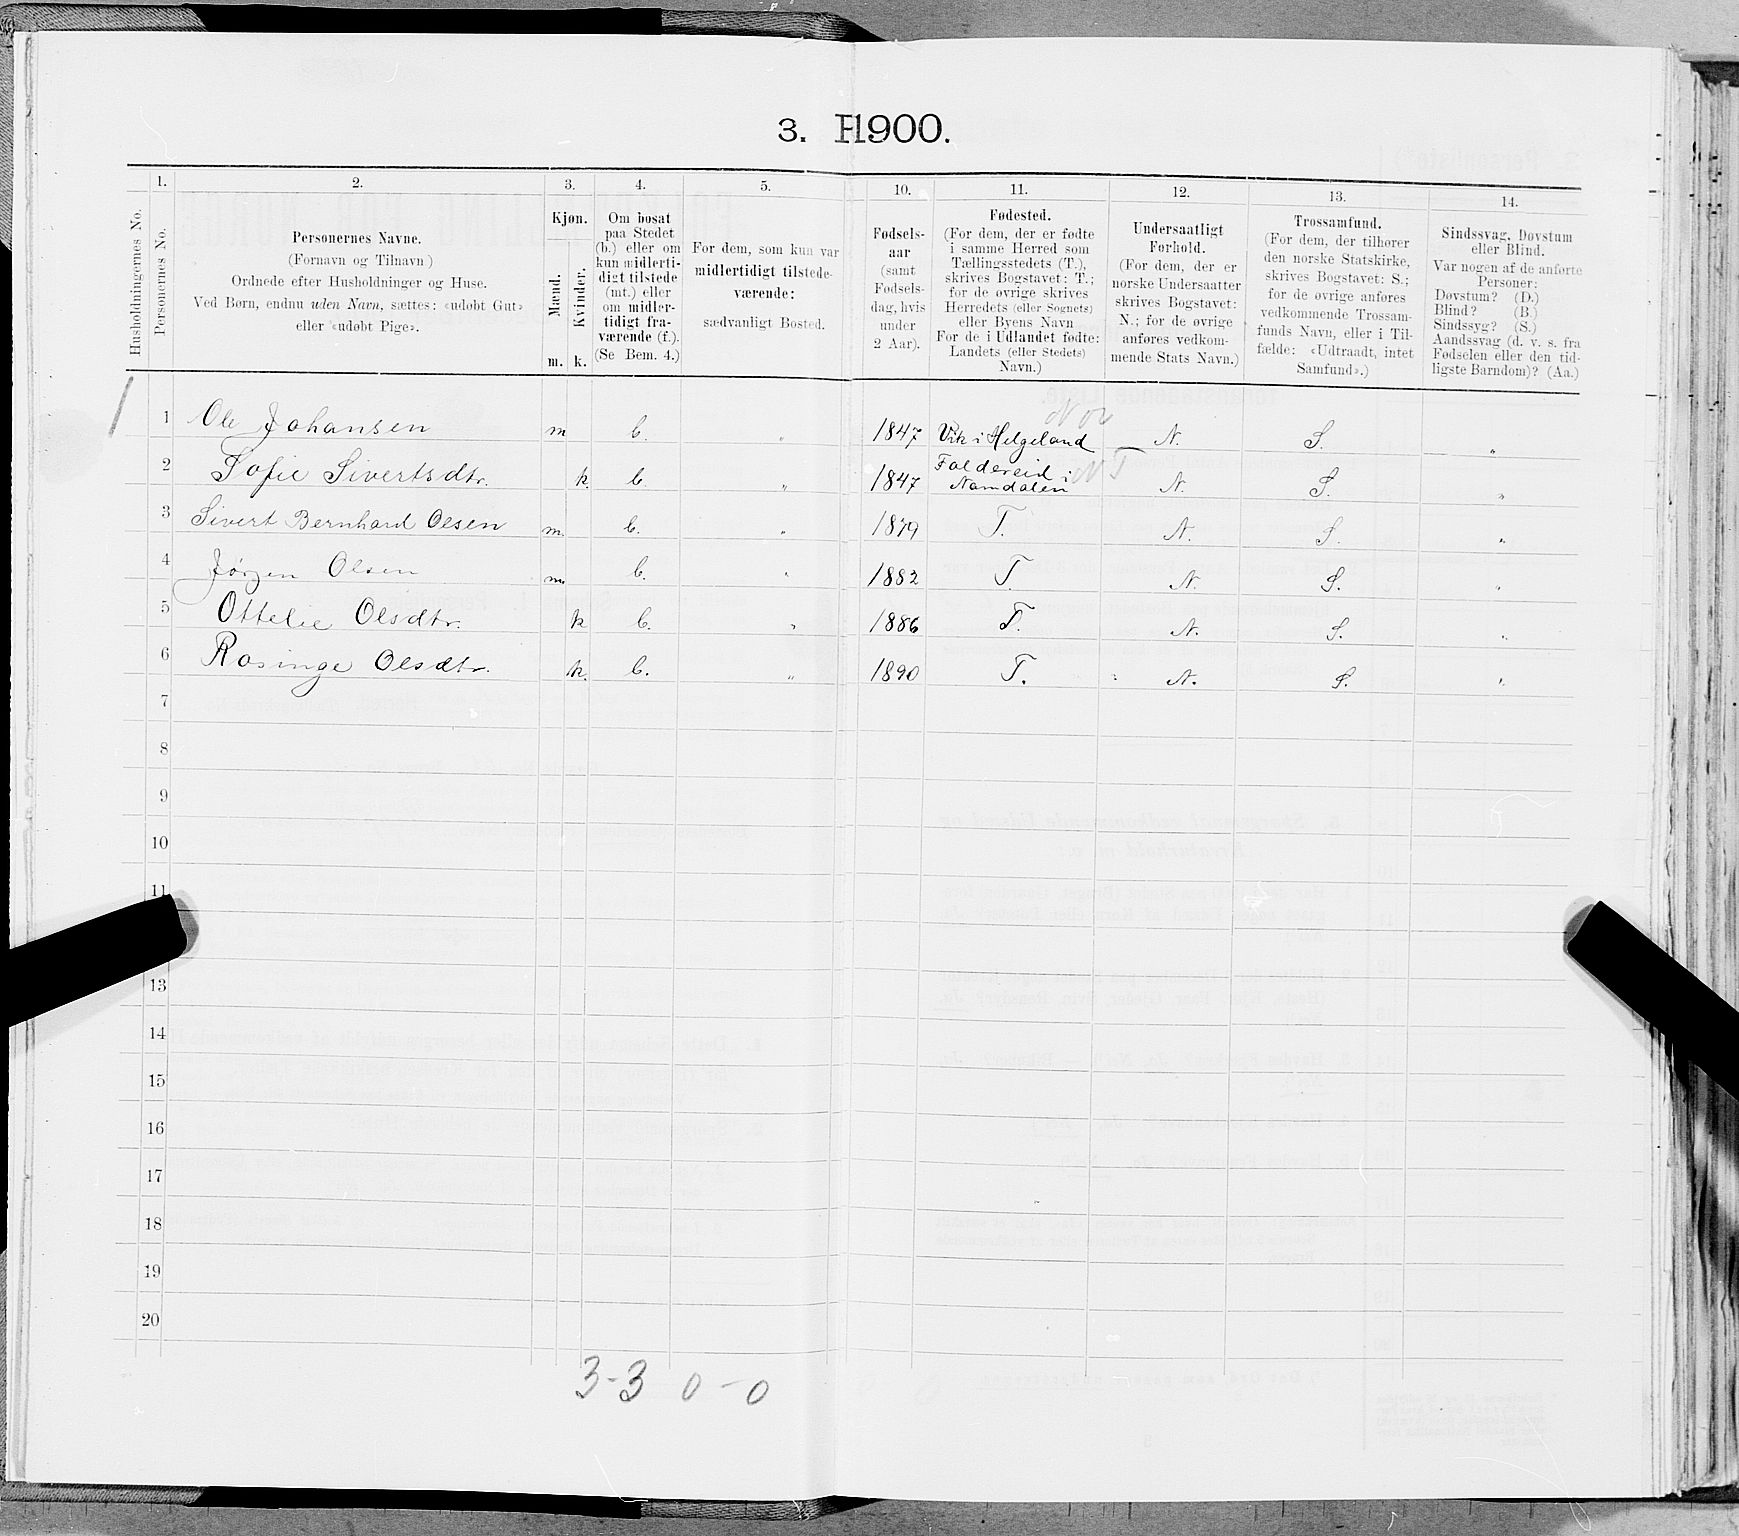 3. H.1900.
1. 2. 3. 4. 5. 10. 11. 12. 13. 14.
Husholdningernes No.
Personernes No.
Personernes Navne.
(Fornavn og Tilnavn )
Ordnede efter Husholdninger og Huse.
Ved Børn, endnu uden Navn, sættes: «udøbt Gut»
eller «udøbt Pige».
Kjøn.
Mænd.
Kvinder.
m. k.
Om bosat
paa Stedet
(b.) eller om
kun midlerti-
digt tilstede
(mt.) eller
om midler-
tidigt fra-
værende (f.).
(Se Bem. 4.)
For dem, som kun var
midlertidigt tilstede-
værende:
sædvanligt Bosted.
Fødsels-
aar
(samt
Fødsels-
dag, hvis
under
2 Aar).
Fødested.
(For dem, der er fødte
i samme Herred som
Tællingsstedets (T.),
skrives Bogstavet: T.;
for de øvrige skrives
Herredets (eller Sognets)
eller Byens Navn
For de i Udlandet fødte:
Landets (eller Stedets)
Navn.)
Undersaatligt
Forhold.
(For dem, der er
norske Undersaatter
skrives Bogstavet:
N.; for de øvrige
anføres vedkom-
mende Stats Navn.)
Trossamfund.
(For dem, der tilhører
den norske Statskirke,
skrives Bogstavet: S.;
for de øvrige anføres
vedkommende Trossam-
funds Navn, eller i Til-
fælde: «Udtraadt, intet
Samfund».)
Sindssvag, Døvstum
eller Blind.
Var nogen af de anførte
Personer:
Døvstum? (D.)
Blind? (B.)
Sindssyg? (S.)
Aandssvag (d. v. s. fra
Fødselen eller den tid-
ligste Barndom)? (Aa.)
Nor
1 Ole Johansen m b. " 1847 Vik i Helgeland N. S. "
2 Sofie Sivertsdtr. k. b. " 1847 Foldereid i Namdalen NT N. S. "
3 Sivert Bernhard Olsen m. b. " 1879 T. N. S. "
4 Jørgen Olsen m. b. " 1882 T N. S. "
5 Ottelie Olsdtr. k b. " 1886 T. N. S. "
6 Rosinge Olsdtr. k. b. " 1890 T. N. S. "
7
8
9
10
11
13
14
15
16
17
18
19
20
3-3 0-0